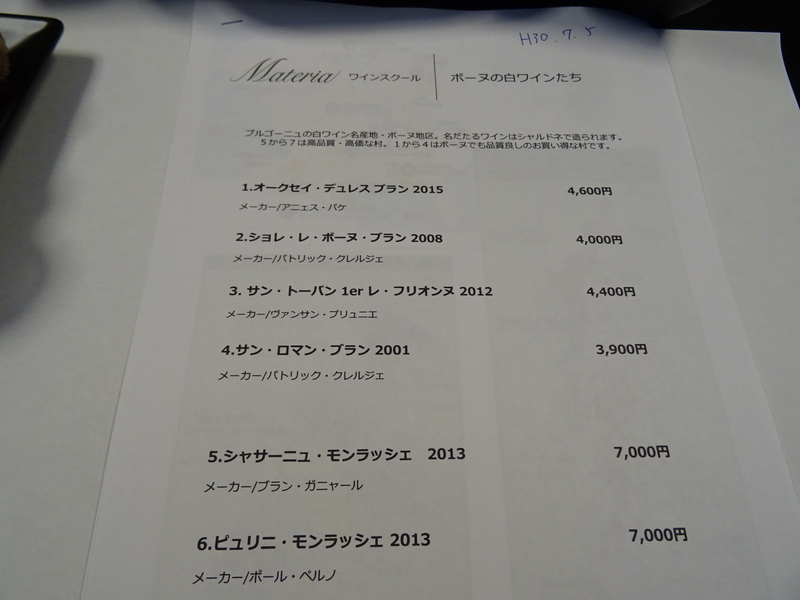 H30.7.5
Materia ワインスクール ボーヌの白ワインたち
ブルゴーニュの白ワイン名産地・ボーヌ地区。名だたるワインはシャルドネで造られます。
5から7は高品質・高価な村。1から4はボーヌでも品質良しのお買い得な村です。
1.オークセイ・デュレス ブラン 2015 4,600円
メーカー/アニェス・パケ
2.ショレ・レ・ボーヌ・ブラン 2008 4,000円
メーカー/パトリック・クレルジェ
3. サン・トーバン 1er レ・フリオンヌ 2012 4,400円
メーカー/ヴァンサン・プリュニエ
4.サン・ロマン・ブラン 2001 3,900円
メーカー/パトリック・クレルジェ
5.シャサーニュ・モンラッシェ 2013 7,000円
メーカー/ブラン・ガニャール
6.ピュリニ・モンラッシェ 2013 7,000円
メーカー/ポール・ペルノ